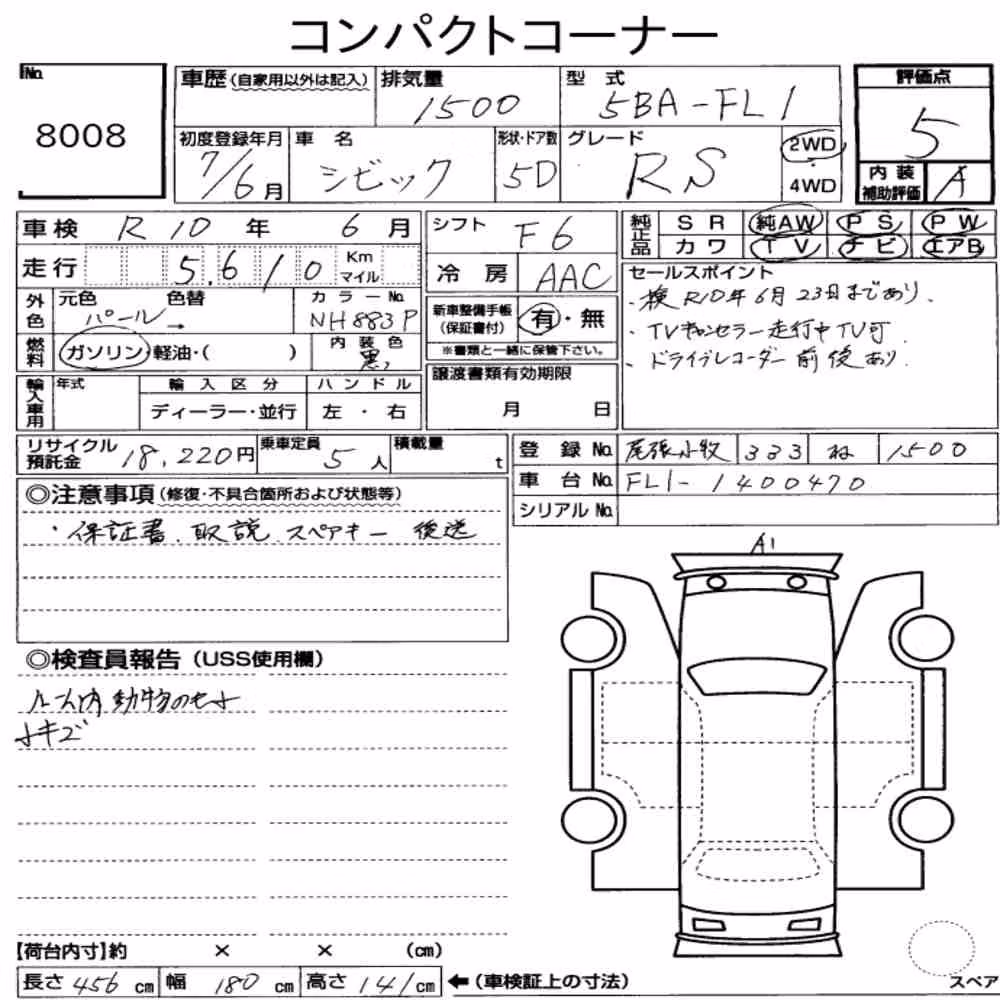 コンパクトコーナー
No.
8008
車歴 (自家用以外は記入)
排気量
1500
型式
5BA-FL1
評価点
5
初度登録年月
7/6月
車名
シビック
形状・ドア数
5D
グレード
RS
2WD
・
4WD
内装
補助評価
A
車検 R10年 6月
シフト
F6
純正品
SR 純AW PS PW
カワ TV ナビ エアB
走行 5,610 Km マイル
冷房
AAC
セールスポイント
・検R10年6月23日まであり.
・TVキャンセラー走行中TV可
・ドライブレコーダー前後あり.
外色
元色 色替
パール→
カラーNo.
NH883P
新車整備手帳
(保証書付)
有・無
※書類と一緒に保管下さい。
燃料
ガソリン・軽油・( )
内装色
黒
輸入車用
年式
輸入区分
ディーラー・並行
ハンドル
左・右
譲渡書類有効期限
月 日
リサイクル
預託金
18,220円
乗車定員
5人
積載量
t
登録No.
尾張小牧 333 ね 1500
車台No.
FL1-1400470
シリアルNo.
◎注意事項 (修復・不具合箇所および状態等)
・保証書、取説、スペアキー 後送
A1
◎検査員報告 (USS使用欄)
ルーム内動物のせ小
小キズ
【荷台内寸】約 × × (cm)
長さ 456 cm 幅 180 cm 高さ 141 cm ←(車検証上の寸法)
スペア